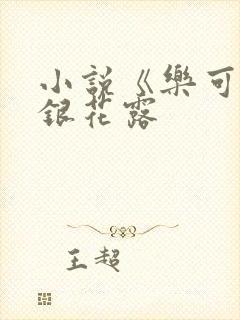 小說《樂可
銀花露
王超